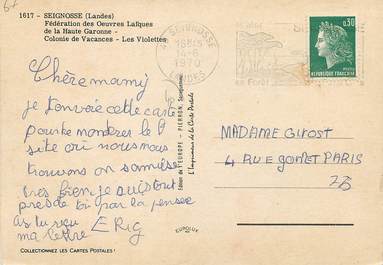 1617 - SEIGNOSSE (Landes)
Fédération des Oeuvres Laïques
de la Haute Garonne -
Colonie de Vacances - Les Violettes
SEIGNOSSE
18H15
14-8
1970
LANDES
0,30
REPUBLIQUE FRANÇAISE
Chère mamy
je t'envoie cette carte
pour te montrer le
site où nous nous
trouvons on s'amuse
très bien je suis tout
près de toi par la pensée
as tu reçu
ma lettre ERIG
MADAME GIROST
4 RUE GOMET PARIS
Edition de l'EUROPE - PIERRON, Sarreguemines
L'Imprimeur de la Carte Postale
EUROLUX
COLLECTIONNEZ LES CARTES POSTALES !